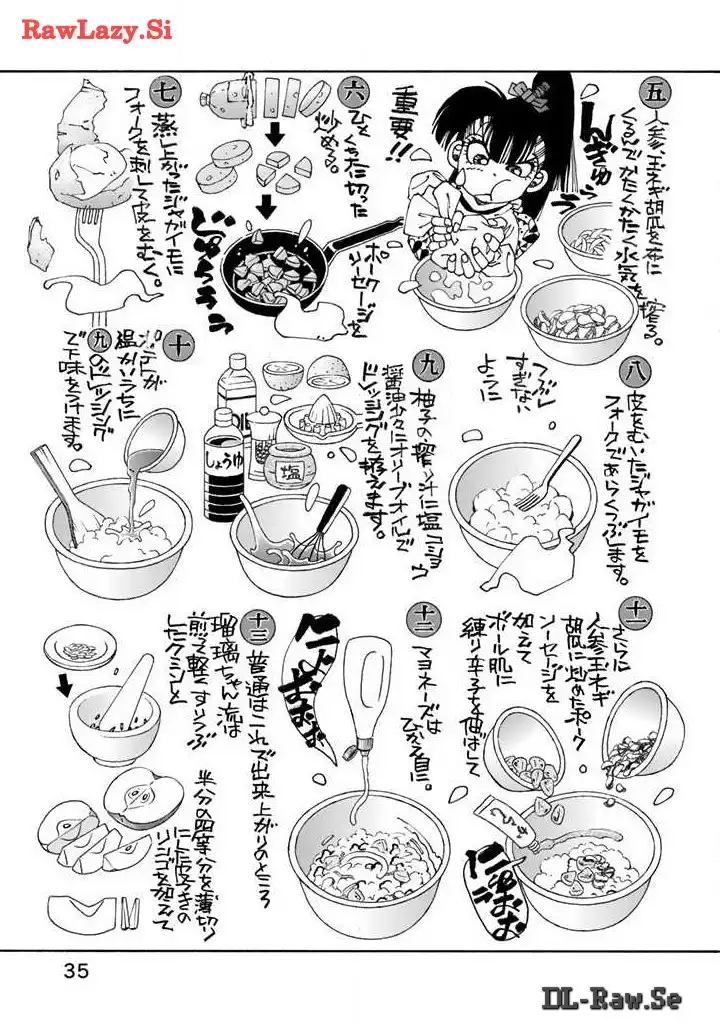 RawLazy.Si
五
人参、玉ネギ、胡瓜を布に
くるんでかたくかたく水気を搾る。
重要!!
六
ひとくち大に切った
ポークソーセージを
炒める。
じゅうううう
七
蒸し上がったジャガイモに
フォークを刺して皮をむく。
八
皮をむいたジャガイモを
フォークであらくつぶします。
つぶし
すぎない
ように
九
柚子の搾り汁に塩、コショウ
醤油少々にオリーブオイルで
ドレッシングを拵えます。
しょうゆ
塩
十
ポテトが
温かいうちに
九のドレッシング
で下味をつけます。
十一
さらに
人参、玉ネギ
胡瓜に炒めたポーク
ソーセージを
加えて
ボール肌に
練り辛子を伸ばして
からし
十二
マヨネーズは
ひかえ目に。
十三
普通はこれで出来上がりのところ
瑠璃ちゃん流は
煎って軽くすりつぶ
したクミンと
半分の四等分を薄切り
にした皮付きの
リンゴを加えて
35
DL-Raw.Se